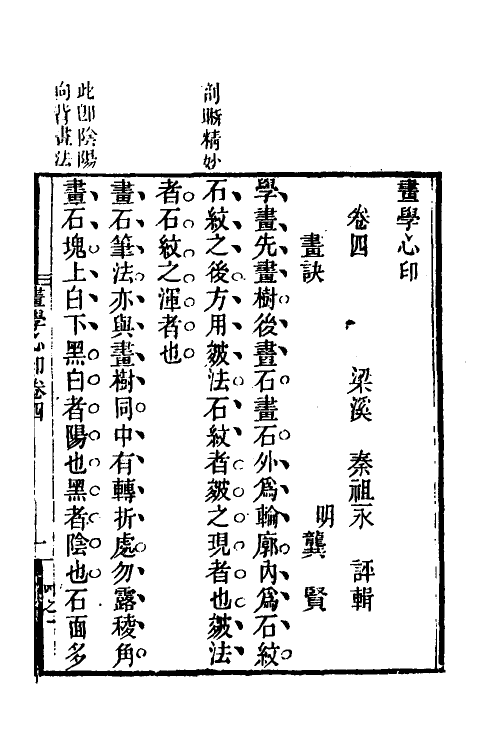 畫學心印
卷四 梁溪 秦祖永 評輯
畫訣 明龔賢
學畫先畫樹後畫石畫石外爲輪廓內爲石紋
石紋之後方用皴法石紋者皴之現者也皴法
者石紋之渾者也
剖晰精妙
畫石筆法亦與畫樹同中有轉折處勿露稜角
畫石塊上白下黑白者陽也黑者陰也石面多
此卽陰陽
向背畫法
畫學心印卷四
一